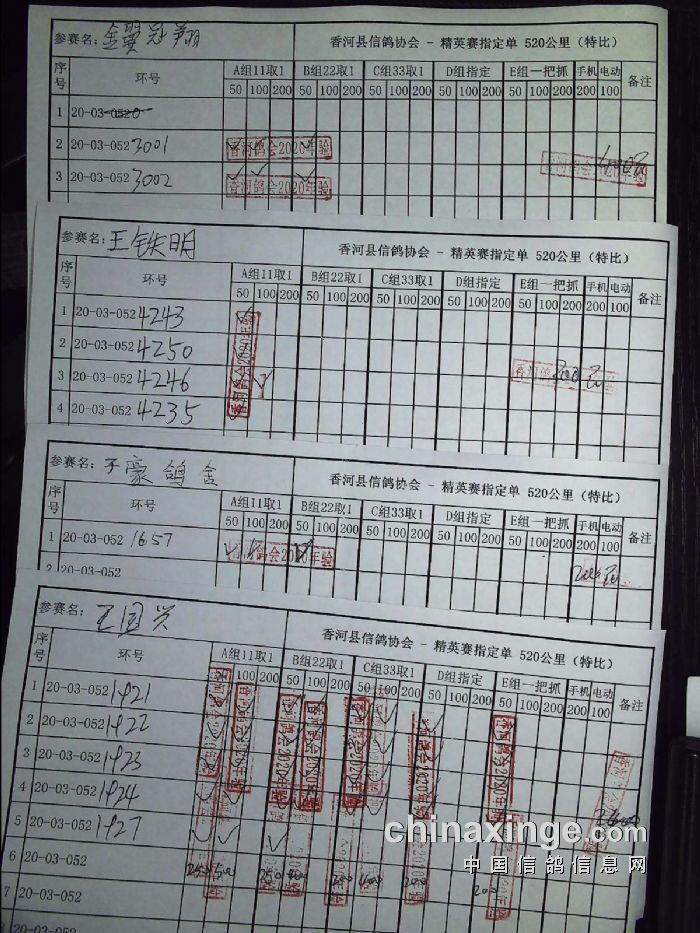 参赛名: 金翼冠翔 香河县信鸽协会 - 精英赛指定单 520公里 (特比)
序号 环号 A组11取1 B组22取1 C组33取1 D组指定 E组一把抓 手机 电动 备注
50 100 200 50 100 200 50 100 200 50 100 200 50 100 200 200 100
1 20-03-0520
2 20-03-0523001 香河鸽会2020年验
3 20-03-0523002 香河鸽会2020年验
参赛名: 王铁明 香河县信鸽协会 - 精英赛指定单 520公里 (特比)
序号 环号 A组11取1 B组22取1 C组33取1 D组指定 E组一把抓 手机 电动 备注
50 100 200 50 100 200 50 100 200 50 100 200 50 100 200 200 100
1 20-03-0524243
2 20-03-0524250
3 20-03-0524246
4 20-03-0524235
参赛名: 子豪鸽舍 香河县信鸽协会 - 精英赛指定单 520公里 (特比)
序号 环号 A组11取1 B组22取1 C组33取1 D组指定 E组一把抓 手机 电动 备注
50 100 200 50 100 200 50 100 200 50 100 200 50 100 200 200 100
1 20-03-052 1657 香河鸽会2020年验
2 20-03-052
参赛名: 王国兴 香河县信鸽协会 - 精英赛指定单 520公里 (特比)
序号 环号 A组11取1 B组22取1 C组33取1 D组指定 E组一把抓 手机 电动 备注
50 100 200 50 100 200 50 100 200 50 100 200 50 100 200 200 100
1 20-03-052 1421
2 20-03-052 1422
3 20-03-052 1423
4 20-03-052 1424
5 20-03-052 1427
6 20-03-052
7 20-03-052
chinaxinge.com
中国信鸽信息网